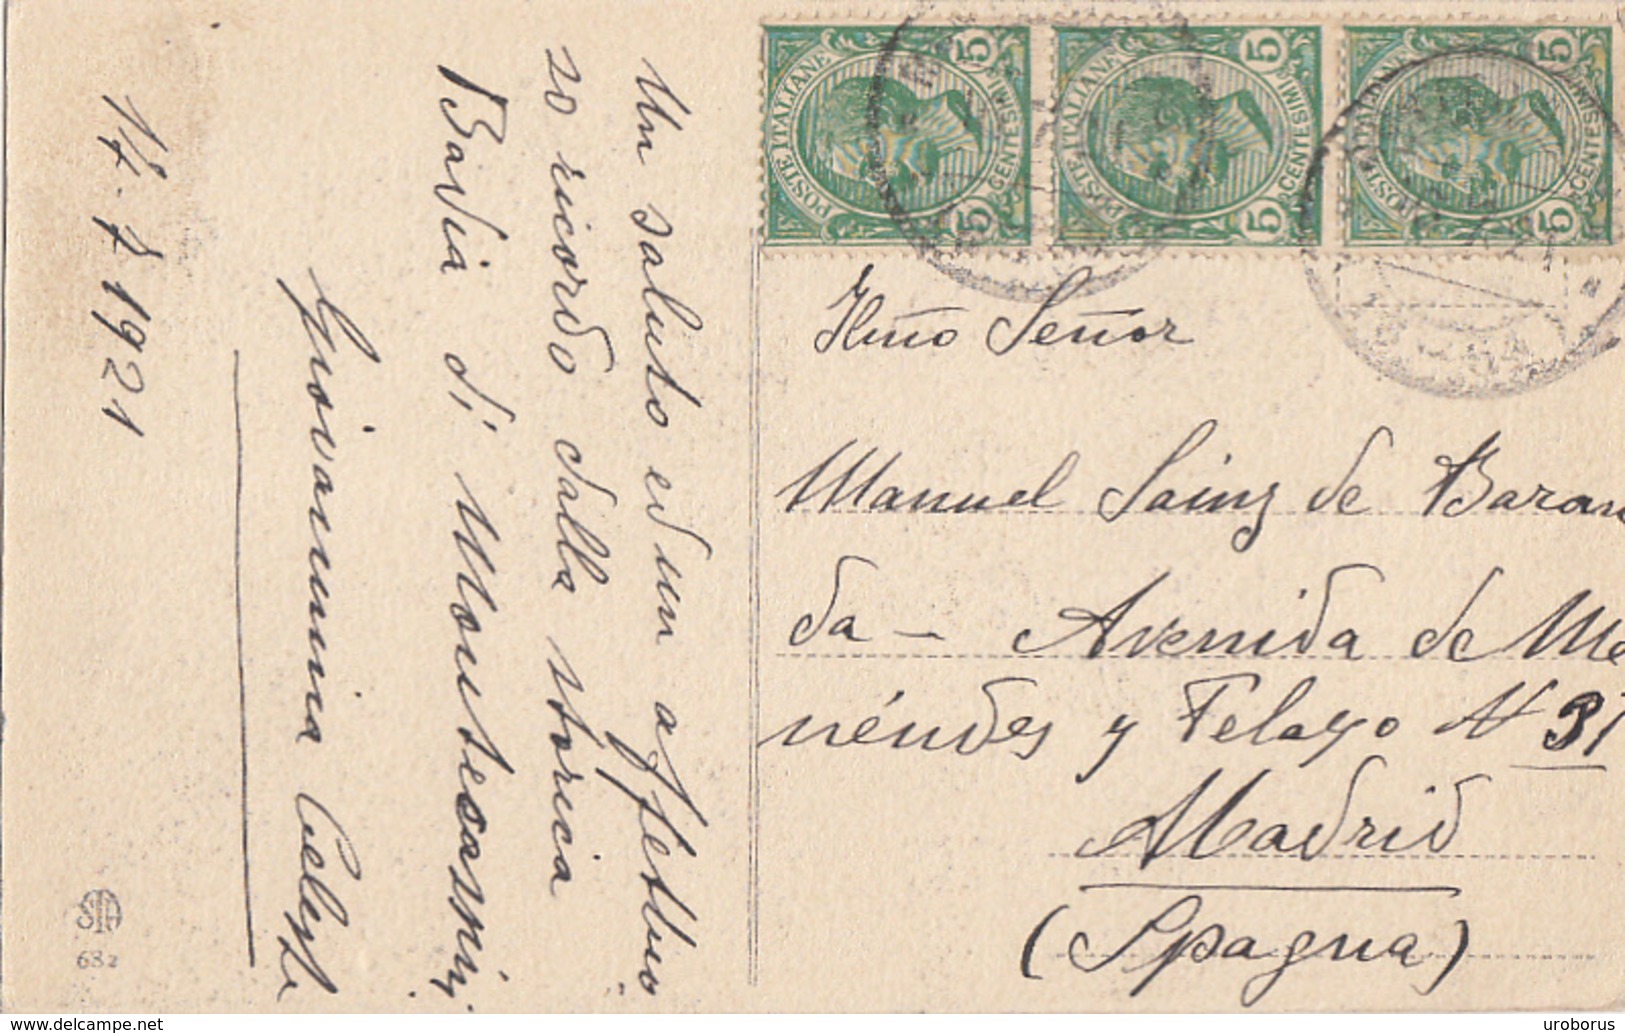 Un saluto ed un affettuo
so ricordo dalla storica
Badia di Montecassini
Giovannina
14. 7 1921
POSTE ITALIANE
5 CENTESIMI 5
POSTE ITALIANE
5 CENTESIMI 5
POSTE ITALIANE
5 CENTESIMI 5
Ilmo Señor
Manuel Sainz de Baran
da - Avenida de Me
néndes y Pelayo N 31
Madrid
(Spagna)
STA
682
www.delcampe.net
uroborus